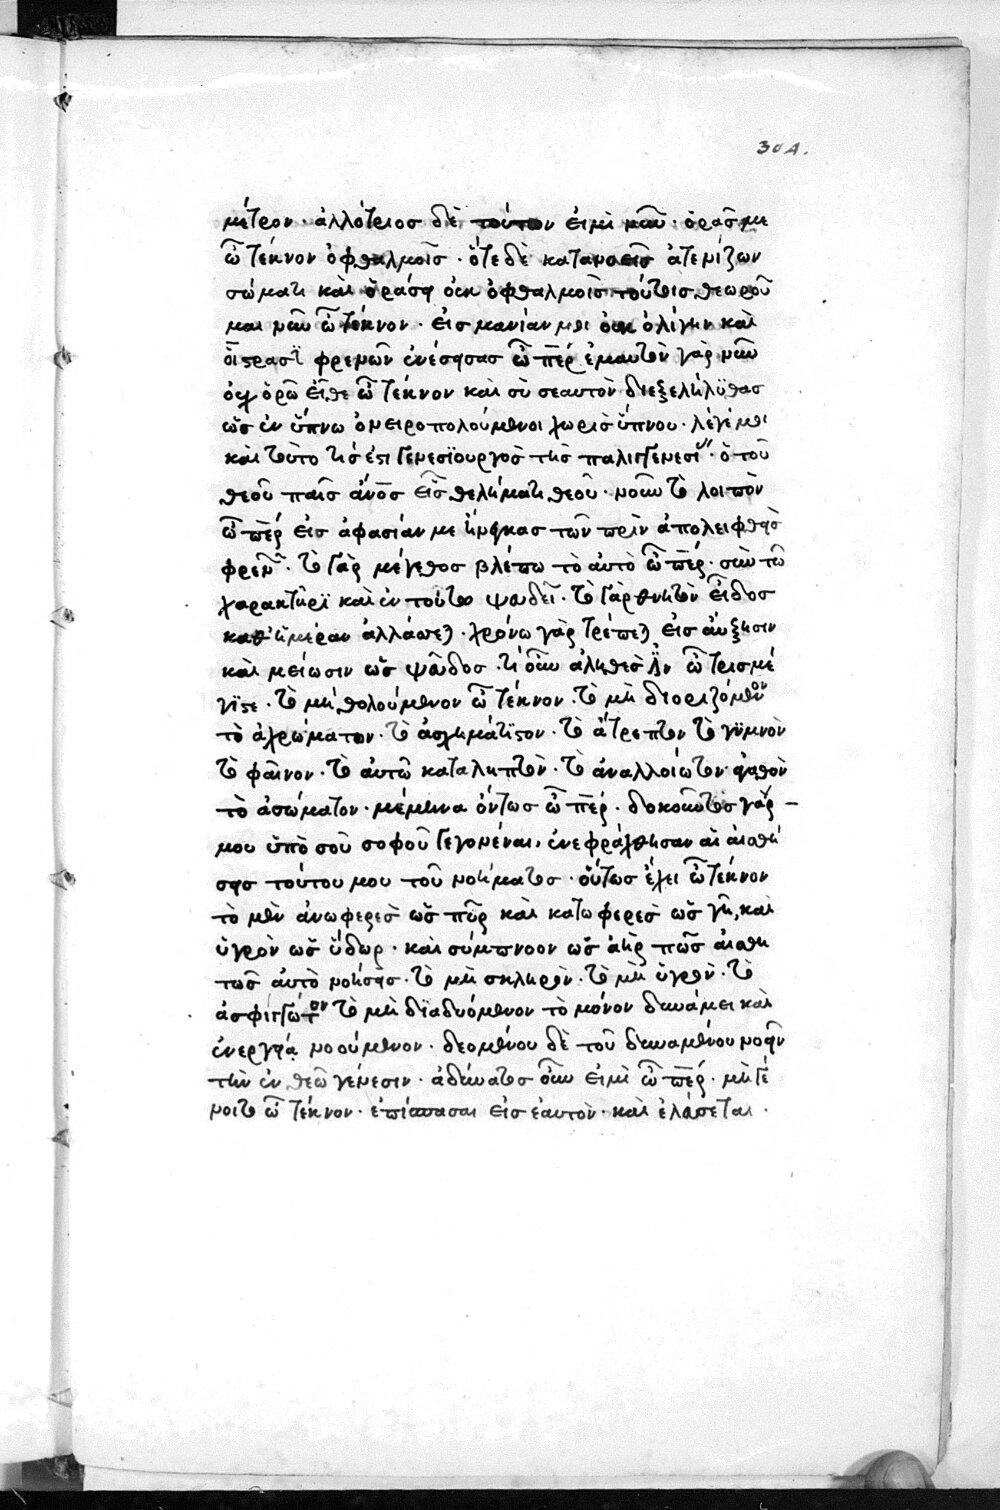 304.
μέτρον · ἀλλότριος δὲ τούτων εἰμὶ νῦν · ὁρᾶς με
ὦ τέκνον ὀφθαλμοῖς · ὅτε δὲ κατανοεῖς ἀτενίζων
σώματι καὶ ὁράσει οὐκ ὀφθαλμοῖς τούτοις θεωροῦ
μαι νῦν ὦ τέκνον · εἰς μανίαν με οὐκ ὀλίγην καὶ
οἴστρησϊ φρενῶν ἐνέσησας ὦ περ ἐμαυτὸν γὰρ νῦν
οὐχ ὁρῶ εἴθε ὦ τέκνον καὶ σὺ σεαυτὸν διεξελήλϋθας
ὡς ἐν ὕπνω ὀνειροπολούμενοι χωρὶς ὕπνου · λέγέ μοι
καὶ τοῦτο τίς ἐστι γενεσϊουργὸς τῆς παλιγγενεσί · ὁ τοῦ
θεοῦ παῖς ἄνος εἷς θελήματι θεοῦ · νῦν τὸ λοιπὸν
ὦ περ εἰς ἀφασίαν με ἤνεγκας τῶν πρὶν ἀπολειφθεὶς
φρενῶν · τὸ γὰρ μέγεθος βλέπω τὸ αὐτὸ ὦ περ · σὺν τῶ
χαρακτῆρϊ καὶ ἐν τούτω ψευδεῖ · τὸ γὰρ θνητὸν εἶδος
καθ' ἡμέραν ἀλλάσσεται · χρόνω γὰρ τρέπεται εἰς αὔξησιν
καὶ μείωσιν ὡς ψεῦδος · τί οὖν ἀληθές ἐστιν ὦ τρισμέ
γϊστε · τὸ μὴ θολούμενον ὦ τέκνον · τὸ μὴ διοριζόμενον
τὸ ἀχρώματον · τὸ ἀσχημάτϊστον · τὸ ἄτρεπτον τὸ γϋμνὸν
τὸ φαῖνον · τὸ αὐτῶ καταληπτὸν · τὸ ἀναλλοίωτον ἀγαθὸν
τὸ ἀσώματον · μέμηνα ὄντως ὦ περ · δοκοῦντος γάρ –
μου ὑπὸ σοῦ σοφοῦ γεγονέναι, ἐνεφράχθησαν αἱ αἰσθή
σεις τούτου μου τοῦ νοήματος · οὕτως ἔχει ὦ τέκνον
τὸ μὲν ἀνωφερὲς ὡς πῦρ καὶ κατωφερὲς ὡς γῆ, καὶ
ὑγρὸν ὡς ὕδωρ · καὶ σύμπνοον ὡς ἀὴρ πῶς αἰσθη
τῶς αὐτὸ νοήσεις · τὸ μὴ σκληρὸν · τὸ μὴ ὑγρὸν · τὸ
ἀσφίγγωτον τὸ μὴ δϊαδυόμενον τὸ μόνον δυνάμει καὶ
ἐνεργεία νοούμενον · δεομένου δὲ τοῦ δυναμένου νοεῖν
τὴν ἐν θεῶ γένεσιν · ἀδύνατος οὖν εἰμὶ ὦ περ · μὴ γέ
νοιτο ὦ τέκνον · ἐπίσπασαι εἰς ἑαυτὸν · καὶ ἐλεύσεται ·